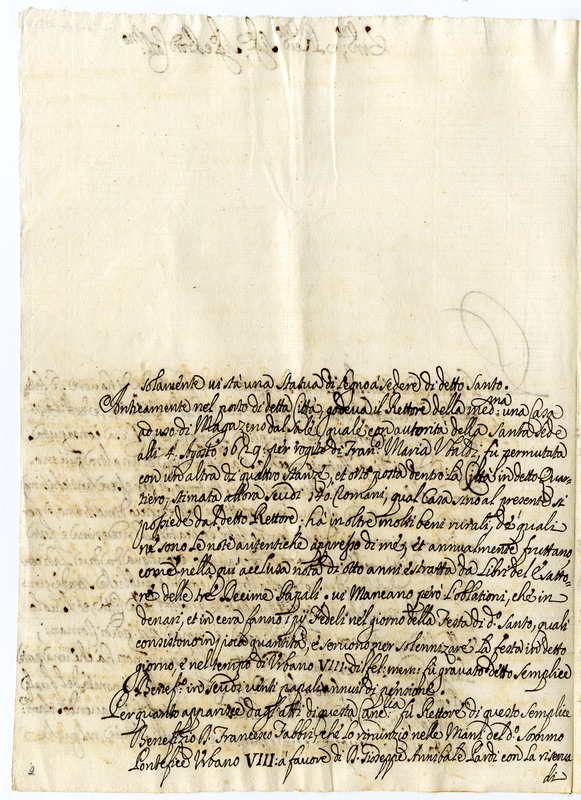 solamente vi stà una statua di legno à sedere di detto Santo.
Anticamente nel porto di detta Città godeva il Rettore della medma: una Casa
ad uso di Magazeno dal Sale, quale con autorità della Santa Sede
alli 4. Agosto 1629: per rogito di Fran: Maria Ubaldi, fù permutata
con un'altra di quattro stanze, et orto posta dentro la Città in detto Quar-
tiero, stimata allora scudi 140: Romani, qual casa sino al presente si
possiede dal detto Rettore; hà inoltre molti beni rurali, de quali
ne sono le note autentiche appresso di me, et annualmente fruttano
come nella qui acclusa nota di otto anni estratta da Libri del Esatto-
re delle tre Decime Papali. vi Mancano però l'oblationi, che in
denari, et in cera fanno i pij Fedeli nel giorno della Festa di do. Santo, quali
consistono in poca quantità, e servono per solennizare la festa in detto
giorno, e nel tempo di Urbano VIII. di fel: mem: fù gravato detto semplice
Benefo. in scudi venti papali annui di pensione.
Per quanto apparisce dagl'atti di questa Cancella. fù Rettore di questo semplice
Benefizio D. Francesco Fabbri, che lo rinunziò nelle Mani del do. Sommo
Pontefice Urbano VIII: à favore di D. Gioseppe Annibale Lardi con la riserva
di